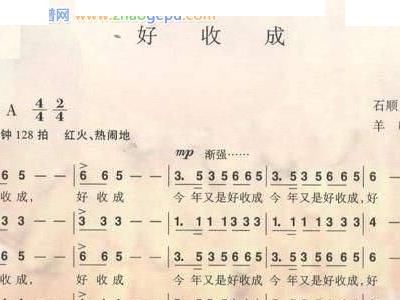 谱网 www.zhaogepu.com
好 收 成
A 4/4 2/4
石顺
钟 128 拍 红火、热闹地
羊
mp 渐强……
6 5 — | 6 6 5 — | 3. 5 3 5 6 6 5 | 3. 5 3 5 6 6 5 | 6 —
收 成, 好 收 成 今 年又是好收成 今 年又是好收成,好
3 3 — | 3 3 3 — | 1. 1 1 1 3 3 3 | 1. 1 1 1 3 3 3 | 4 —
6 5 — | 6 6 5 — | 3. 5 3 5 6 6 5 | 3. 5 3 5 6 6 5 | 6 —
收 成, 好 收 成 今 年又是好收成 今 年又是好收成,好